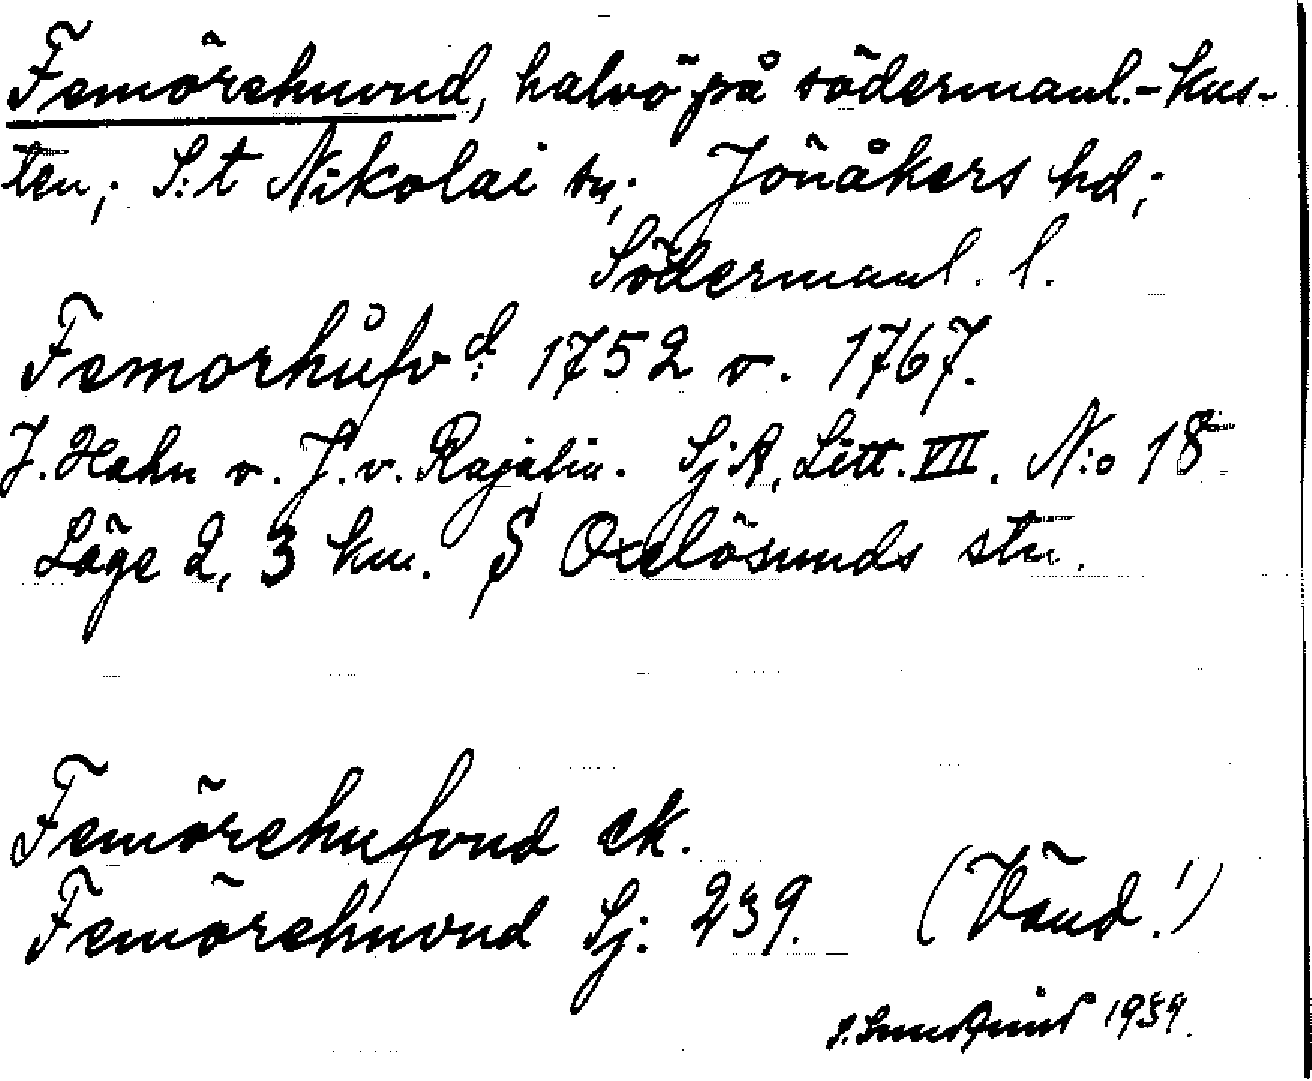 Femörehuvud, halvö på södermanl.-kus-
ten; S:t Nikolai sn; Jönåkers hd;
Södermanl. l.
Femorhufvd: 1752 o. 1767.
J. Hahn o. J. v. Rajalin. SjA, Litt. VII. N:o 18
Läge 2,3 km. S Oxelösunds stn.
Femörehufvud ek.
Femörehuvud Sj: 239. (Vänd!)
1939.